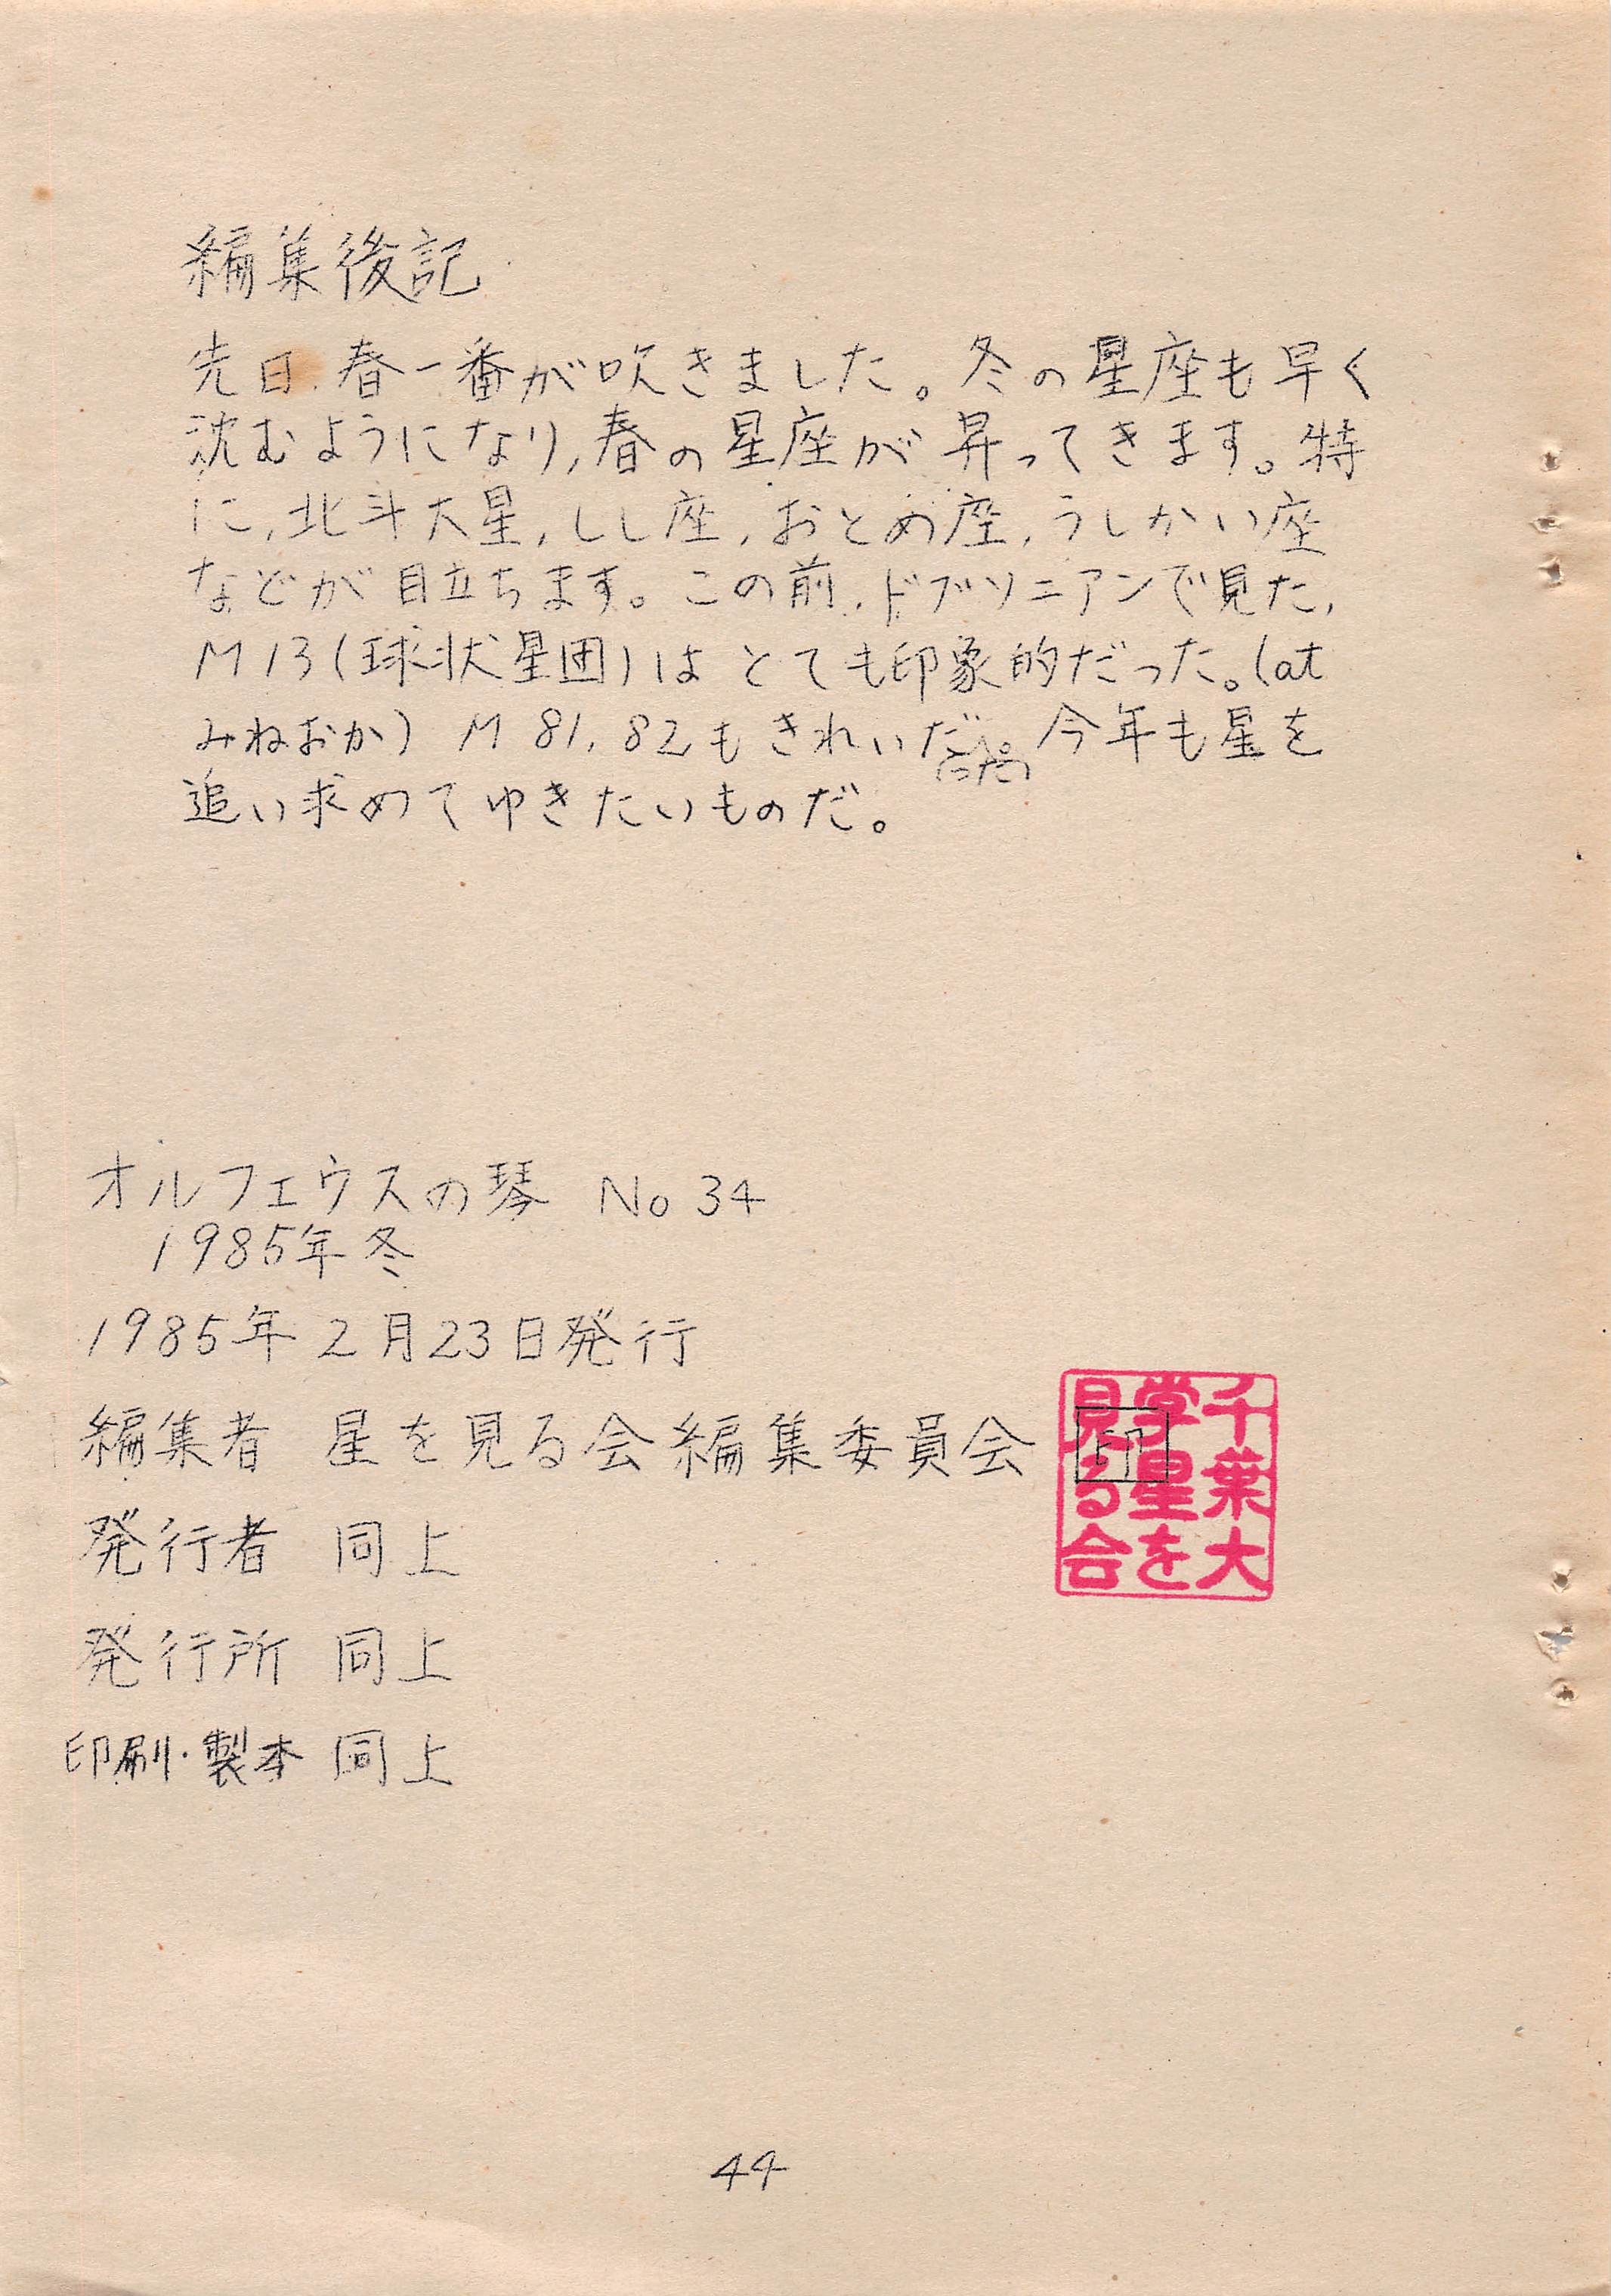 編集後記
先日、春一番が吹きました。冬の星座も早く
沈むようになり,春の星座が昇ってきます。特
に,北斗大星,しし座,おとめ座,うしかい座
などが目立ちます。この前,ドブソニアンで見た,
M13(球状星団)はとても印象的だった。(at
みねおか) M 81, 82もきれいだった。今年も星を
追い求めてゆきたいものだ。
オルフェウスの琴 No 34
1985年冬
1985年2月23日発行
編集者 星を見る会編集委員会 印
千葉大学星を見る会
発行者 同上
発行所 同上
印刷・製本 同上
44